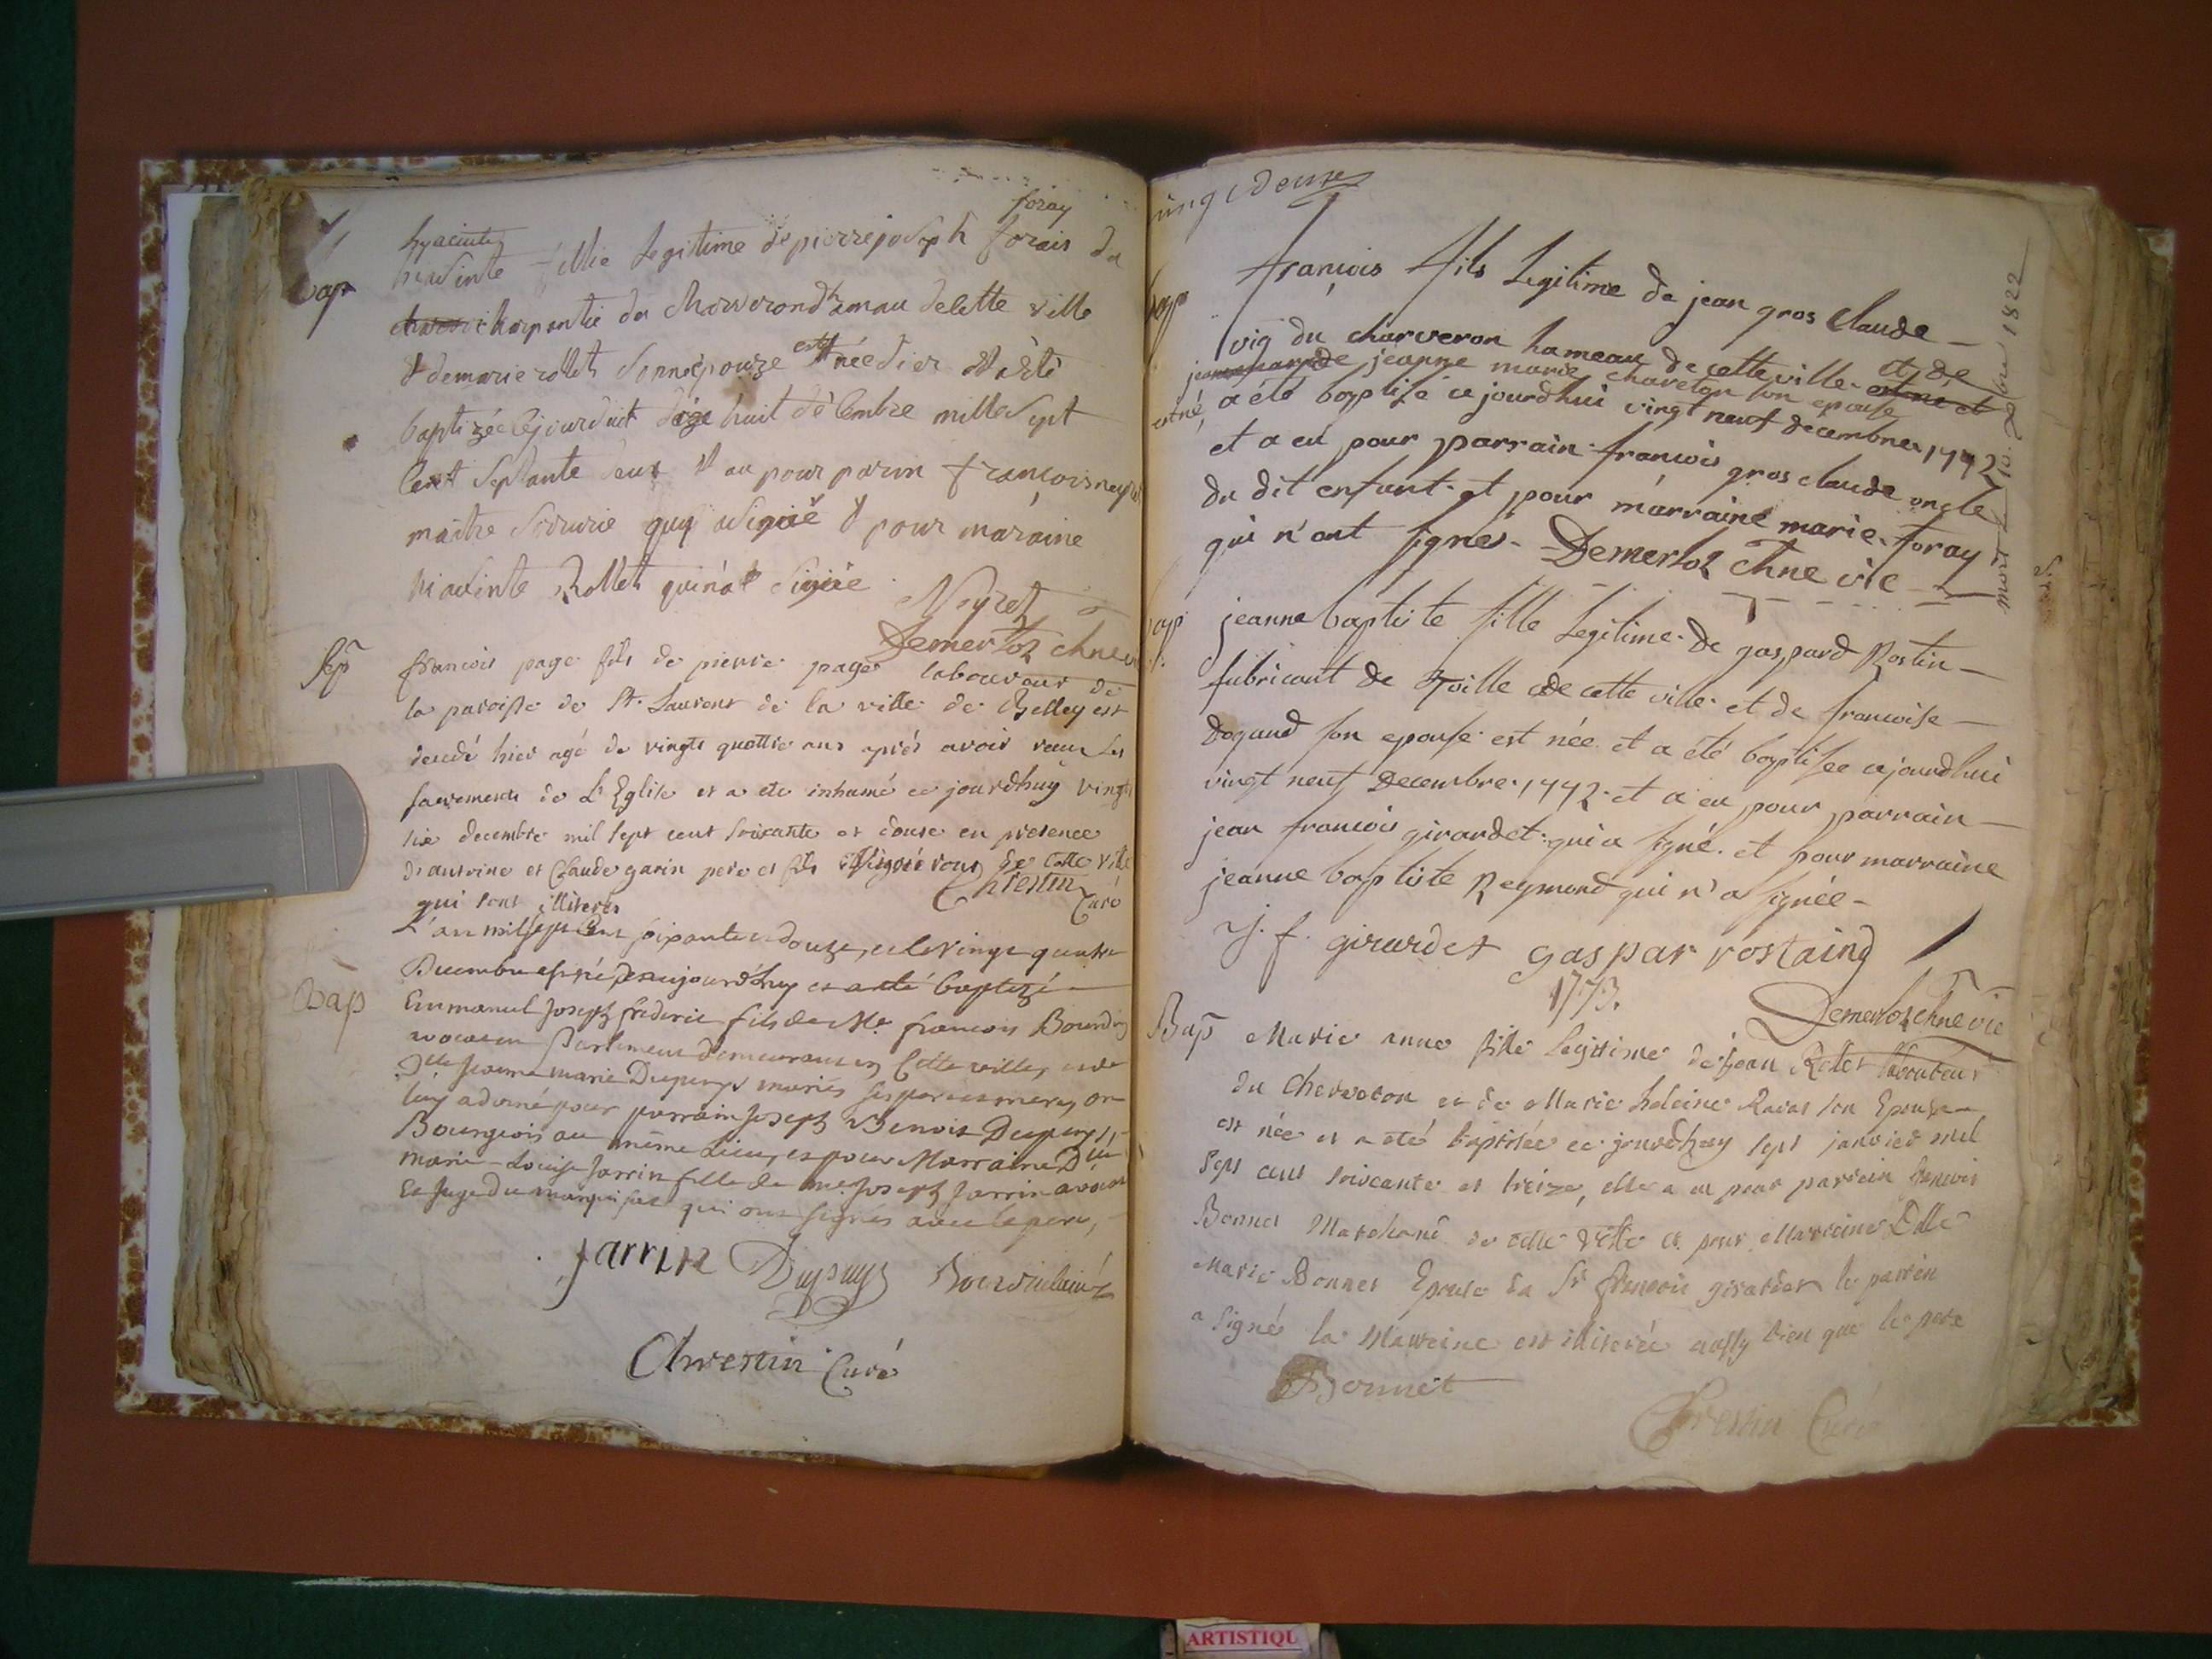 foray
hyacinte
Bap hiasinte fillie Legitime de pierre joseph forais du
charpantie du Charverond hamau de cette ville
& de marie rollet sonnépouze est née dier & a été
baptizée cejourduit dize huit décembre mille sept
cent septante deux & au pour parin francois neyret
maitre serrurie quy a signié & pour maraine
hiasinte Rollet qui na signiée
Neyret
Demerloz chne vic
Sep francois page fils de pierre page laboureur de
la paroisse de St. Laurent de la ville de Belley est
decedé hier agé de vingts quattre ans aprés avoir recu les
sacrements de L'Eglise et a ete inhumé ce jourdhuy vingts
six decembre mil sept cent soixante et douze en presence
d'antoine et Claude garin pere et fils vigneron de cette ville
qui sont illiterés Chrestin Curé
L'an mil sept cent soixante et douze, et le vingt quatre
Decembre est né, et aujourd'huy et a été baptizé
Bap Emmanuel Joseph frederic fils de Me. francois Bourdin
avocat en Parlement demeurant en cette ville, et de
Dlle Jeanne marie Dupuys mariés ses pere et mere, on
luy a donné pour parrain Joseph Benoit Dupuys,
Bourgeois au même Lieu, et pour Marraine Dlle
Marie-Louise Jarrin fille de me. Joseph Jarrin avocat
Et Juge du marquisat qui ont signés avec le pere,
Jarrin Dupuys
Chrestin Curé
vingt deuze
Bap François fils Legitime de jean gros claude
vig du charveron hameau de cette ville et de
jeanne marie chareton son epouse
est né, a été baptisé ce jourdhui vingt neuf decembre 1772
et a eû pour parrain francois gros claude oncle
du dit enfant et pour marraine marie foray
qui n'ont signés - Demerloz chne vic
mort le 10. 1822
bap jeanne baptiste fille Legitime de gaspard Rostin
fabricant de Toille de cette ville et de francoise
dogaud son epouse est née et a été baptisée cejourdhui
vingt neuf Decembre 1772 et a eu pour parrain
jean francois girardet qui a signé et pour marraine
jeanne baptiste Reymond qui n'a signée
J. f. girardet gaspar rostaing
1773.
Demerloz chne vic
Bap Marie anne fille legitime de jean Rolet laboureur
du Cherveron et de Marie heleine Ravat son Epouse
est née et a été baptisée ce jourdhuy sept janvier mil
sept cent soixante et treize, elle a eu pour parrein benoit
Bonnet Marchand de cette ville et pour Marreine Dlle
Marie Bonnet Epouse du Sr francois girardet le parrein
a signé la Marreine est illiterée aussy bien que le pere
Bonnet
Chrestin Curé
ARTISTIQU